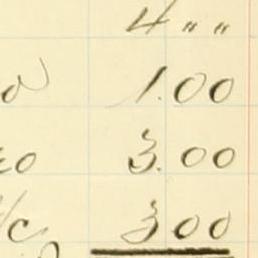 4 " "
1.00
3.00
/c 300